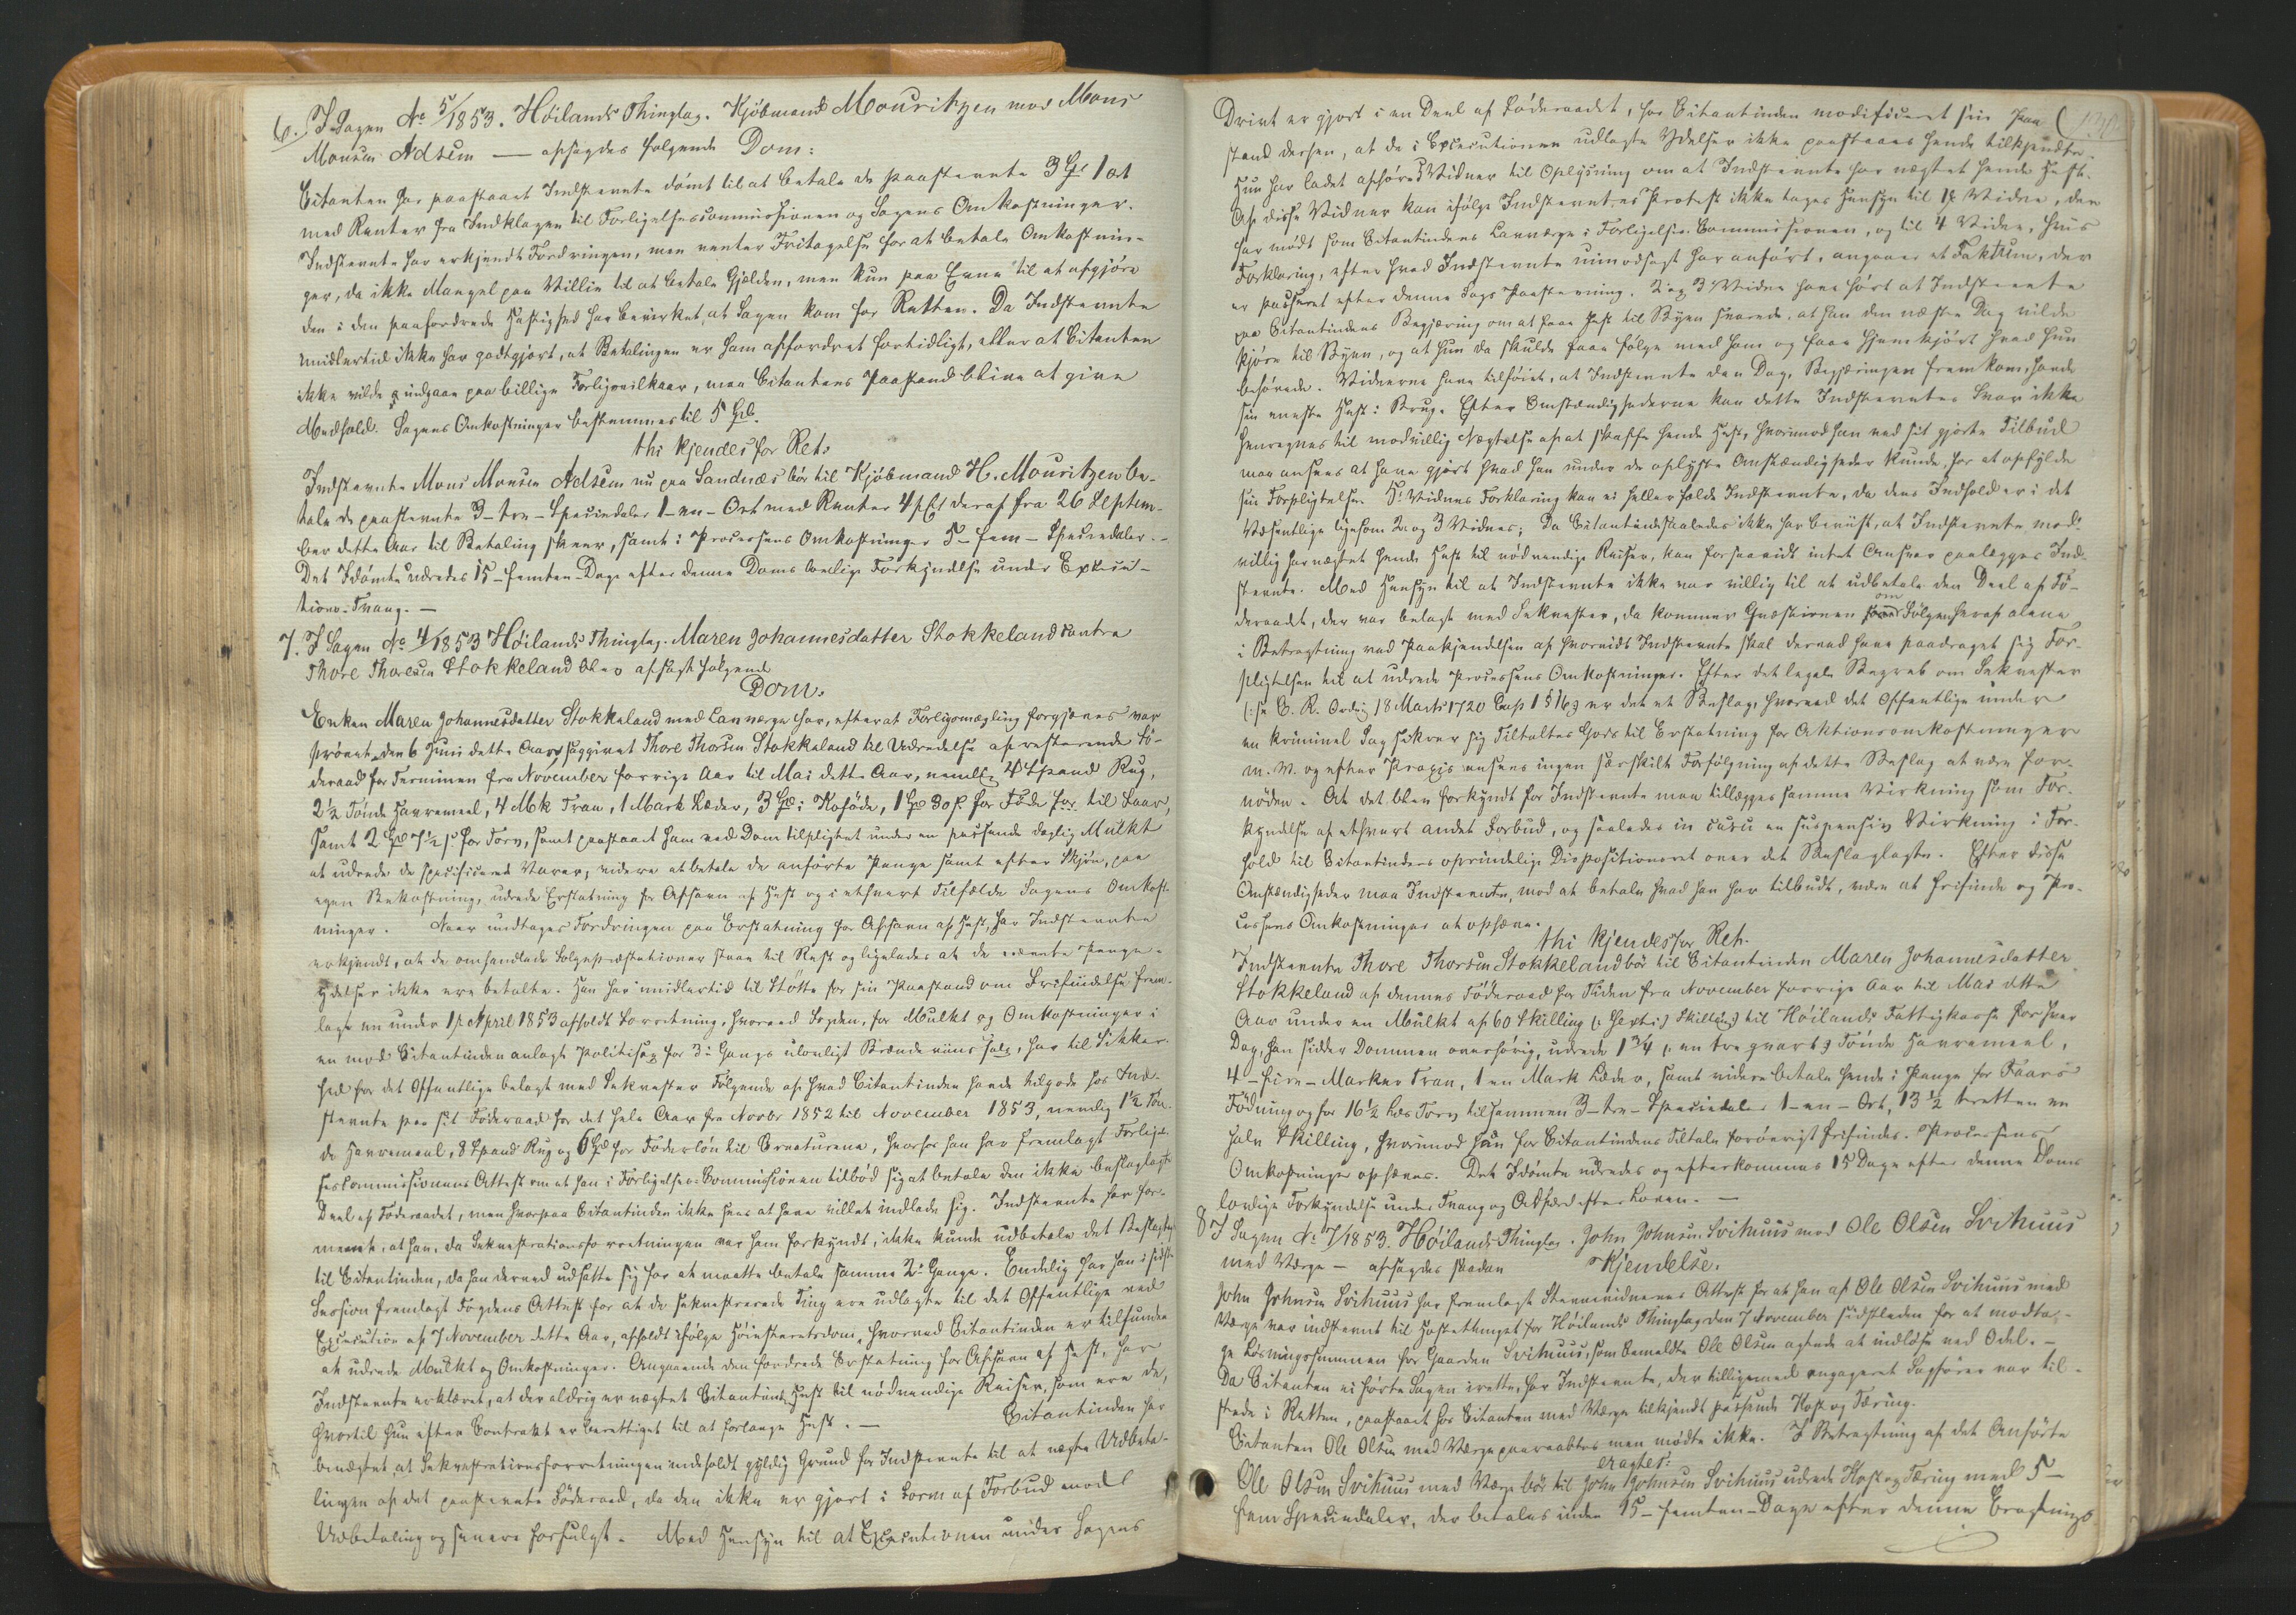 6. I Sagen No 5/1853. Høilands Thinglag. Kjøbmand Mouritzen mod Mons
Monsen Adsem — afsagdes følgende Dom:
Citanten har paastaaet Indstevnte dømt til at betale de paastevnte 3 Spd 1 ort
med Renter fra Indklagen til Forligelsescommissionen og Sagens Omkostninger.
Indstevnte har erkjendt Fordringen, men venter Fritagelse for at betale Omkostnin-
ger, da ikke Mangel paa Villie til at betale Gjælden, men kun paa Evne til at afgjøre
den i den paafordrede Hastighed har bevirket, at Sagen kom for Retten. Da Indstevnte
imidlertid ikke har godtgjort, at Betalingen er ham affordret fortidligt, eller at Citanten
ikke vilde indgaae paa billige Forligsvilkaar, maa Citantens Paastand blive at give
Medhold. Sagens Omkostninger bestemmes til 5 Spd.
thi kjendes for Ret:
Indstevnte Mons Monsen Adsem nu paa Sandnæs bør til Kjøbmand H. Mouritzen be-
tale de paastevnte 3 – tre – Speciedaler 1 – en – Ort med Renter 4 pCt deraf fra 26 Septem-
ber dette Aar til Betaling skeer, samt i Processens Omkostninger 5 – fem – Speciedaler. –
Det Idømte udredes 15 – femten Dage efter denne Doms lovlige Forkyndelse under Execu-
tions-Tvang. —
7. I Sagen No 4/1853 Høilands Thinglag. Maren Johannesdatter Stokkeland contra
Thore Thoresen Stokkeland blev afsagt følgende
Dom.
Enken Maren Johannesdatter Stokkeland med Laugværge har, efterat Forligsmægling forgjæves var
prøvet den 6 Juni dette Aar, saggivet Thore Thorsen Stokkeland til Udredelse af resterende Fø-
deraad for Terminen fra November forrige Aar til Mai dette Aar, nemlig 4 Spand Rug,
2½ Tønde Havremeel, 4 Mk Tran, 1 Mark Læder, 3 Spd i Koføde, 1 Spd 80 s. for Føde for til Faar,
samt 2 Spd 7½ s for Torv, samt paastaaet ham ved Dom tilpligtet under en passende daglig Mulkt
at udrede de specificered Varer, videre at betale de anførte Penge samt efter Skjøn, paa
egen Bekostning, udrede Erstatning for Afsavn af Hest og i ethvert Tilfælde Sagens Omkost-
ninger. Naar undtages Fordringen paa Erstatning for Afsavn af Hest, har Indstevnte
erkjendt, at de omhandlede Følgepræstationer staae til Rest og ligeledes at de nævnte Penge-
Ydelser ikke ere betalte. Han har imidlertid til Støtte for sin Paastand om Frifindelse frem-
lagt en under 1ste April 1853 afholdt Forretning, hvorved Fogden, for Mulkt og Omkostninger i
en mod Citantinden anlagt Politisag for 3die Gangs ulovligt Brændeviins Salg, har til Sikker-
hed for det Offentlige belagt med Sekvester Følgende af hvad Citantinden havde tilgode hos Ind-
stevnte paa sit Føderaad for det hele Aar fra Novbr 1852 til November 1853, nemlig 1½ Tøn-
de Havremeel, 8 Spand Rug og 6 Spd for Foderløn til Creaturene, hvorhos han har fremlagt Forligel-
sescommissionens Attest om at han i Forligelses-Commissionen tilbød sig at betale den ikke beslaglagte
Deel af Føderaadet, men hvorpaa Citantinden ikke sees at have villet indlade sig. Indstevnte har for-
meent, at han, da Sekvestrationsforretningen var ham forkyndt, ikke kunde udbetale det Beslaglagte
til Citantinden, da han derved udsatte sig for at maatte betale samme 2de Gange. Endelig har han i sidste
Session fremlagt Fogdens Attest for at de sekvestrerede Ting ere udlagte til det Offentlige ved
Execution af 7 November dette Aar, afholdt ifølge Høiesteretsdom, hvorved Citantinden er tilfunden
at udrede Mulkt og Omkostninger. Angaaende den fordrede Erstatning for Afsavn af Hest, har
Indstevnte erklæret, at der aldrig er nægtet Citantinden Hest til nødvendige Reiser, som ere de,
hvortil hun efter Contrakt er berettiget til at forlange Hest. — Citantinden har
benægtet at Sekvestrationsforretningen indeholdt gyldig Grund for Indstevnte til at nægte Udbeta-
lingen af det paastevnte Føderaad, da den ikke er gjort i Form af Forbud mod
Udbetaling og senere forfulgt. Med Hensyn til at Executionen under Sagens
Drivt er gjort i en Deel af Føderaadet, har Citantinden modificeret sin Paa-
stand derhen, at de i Executionen udlagte Ydelser ikke paastaaes hende tilkjendte.
Hun har ladet afhøre 5 Vidner til Oplysning om at Indstevnte har nægtet hende Hest.
Af disse Vidner kan ifølge Indstevntes Protest ikke tages Hensyn til 1ste Vidne, der
har mødt som Citantindens Laugværge i Forligelses-Commissionen, og til 4 Vidne, hvis
Forklaring, efter hvad Indstevnte uimodsagt har anført, angaaer et Faktum, der
er passeret efter denne Sags Paastevning. 2 og 3 Vidne have hørt at Indstevnte
paa Citantindens Begjæring om at faae Hest til Byen svarede, at han den næste Dag vilde
kjøre til Byen, og at hun da skulde faae følge med ham og faae hjemkjørt hvad hun
behøvede. Vidnerne have tilføiet, at Indstevnte den Dag, Begjæringen fremkom, havde
sin eneste Hest i Brug. Efter Omstændighederne kan dette Indstevntes Svar ikke
henregnes til modvillig Nægtelse af at skaffe hende Hest, hvorimod han ved sit gjorte Tilbud
maa ansees at have gjort hvad han under de oplyste Omstændigheder kunde, for at opfylde
sin Forpligtelse. 5te Vidnes Forklaring kan ei heller fælde Indstevnte, da dens Indhold er i det
Væsentlige ligesom 2 og 3 Vidnes; Da Citantinden saaledes ikke har beviist, at Indstevnte mod-
villig har nægtet hende Hest til nødvendige Reiser, kan forsaavidt intet Ansvar paalægges Ind-
stevnte. Med Hensyn til at Indstevnte ikke var villig til at udbetale den Deel af Fø-
deraadet, der var belagt med Sekvester, da kommer Quæstionen om Følgen heraf alene
i Betragtning ved Paakjendelsen af hvorvidt Indstevnte skal derved have paadraget sig For-
pligtelsen til at udrede Processens Omkostninger. Efter det legale Begreb om Sekvester
(: se C. R. Ordg 18 Marts 1720 Cap 1 § 16:) er det et Beslag, hvorved det Offentlige under
en kriminel Sag sikrer sig Tiltaltes Gods til Erstatning for Aktionsomkostninger
m. V. og efter Praxis ansees ingen særskilt Forfølgning af dette Beslag at være for-
nøden. At det blev forkyndt for Indstevnte maa tillægges samme Virkning som For-
kyndelse af ethvert andet Forbud, og saaledes in casu en suspensiv Virkning i For-
hold til Citantindens oprindelige Dispositionsret over det Beslaglagte. Efter disse
Omstændigheder maa Indstevnte, mod at betale hvad han har tilbudt, være at frifinde og Pro-
cessens Omkostninger at ophæve.
thi kjendes for Ret:
Indstevnte Thore Thorsen Stokkeland bør til Citantinden Maren Johannesdatter
Stokkeland af dennes Føderaad for Tiden fra November forrige Aar til Mai dette
Aar under en Mulkt af 60 Skilling (: sexti :) Skilling til Høilands Fattigkasse for hver
Dag, han sidder Dommen overhørig, udrede 1¾ (: en tre qvart :) Tønde Havremeel,
4 – fire – Marker Tran, 1 en Mark Læder, samt videre betale hende i Penge for Faars
Fødning og for 16½ Læs Torv tilsammen 3 – tre – Speciedaler 1 – en – Ort, 13½ tretten en
halv Skilling, hvorimod han for Citantindens Tiltale forøvrigt frifindes. Processens
Omkostninger ophæves. Det Idømte udredes og efterkommes 15 Dage efter denne Doms
lovlige Forkyndelse under Tvang og Adfærd efter Loven. —
8 I Sagen No 7/1853. Høilands Thinglag. John Johnsen Svihuus mod Ole Olsen Svihuus
med Værge – afsagdes saadan Kjendelse.
John Johnsen Svihuus har fremlagt Stevnevidnernes Attest for at han af Ole Olsen Svihuus med
Værge var indstevnt til Høstethinget for Høilands Thinglag den 7 November sidstleden for at modta-
ge Løsningssummen for Gaarden Svihuus, som bemeldte Ole Olsen agtede at indløse ved Odel. –
Da Citanten ei førte Sagen irette, har Indstevnte, der tilligemed engageret Sagfører var til-
stede i Retten, paastaaet hos Citanten med Værge tilkjendt passende Kost og Tæring.
Citanten Ole Olsen med Værge paaraabtes men mødte ikke. I Betragtning af det Anførte
eragtes:
Ole Olsen Svihuus med Værge bør til John Johnsen Svihuus udrede Kost og Tæring med 5 –
fem Speciedaler, der betales inden 15 – femten – Dage efter denne Eragtnings